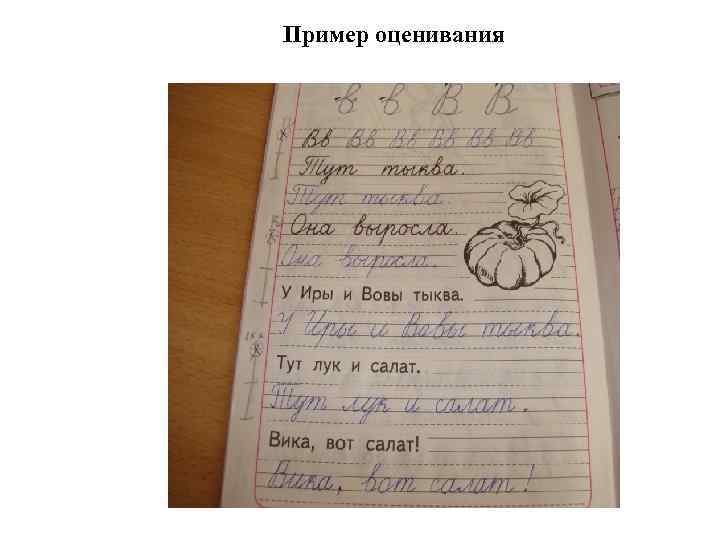 Пример оценивания
в в В В
Вв Вв Вв Вв Вв Вв
Тут тыква.
Тут тыква.
Она выросла.
Она выросла.
У Иры и Вовы тыква.
У Иры и Вовы тыква.
Тут лук и салат.
Тут лук и салат.
Вика, вот салат!
Вика, вот салат!